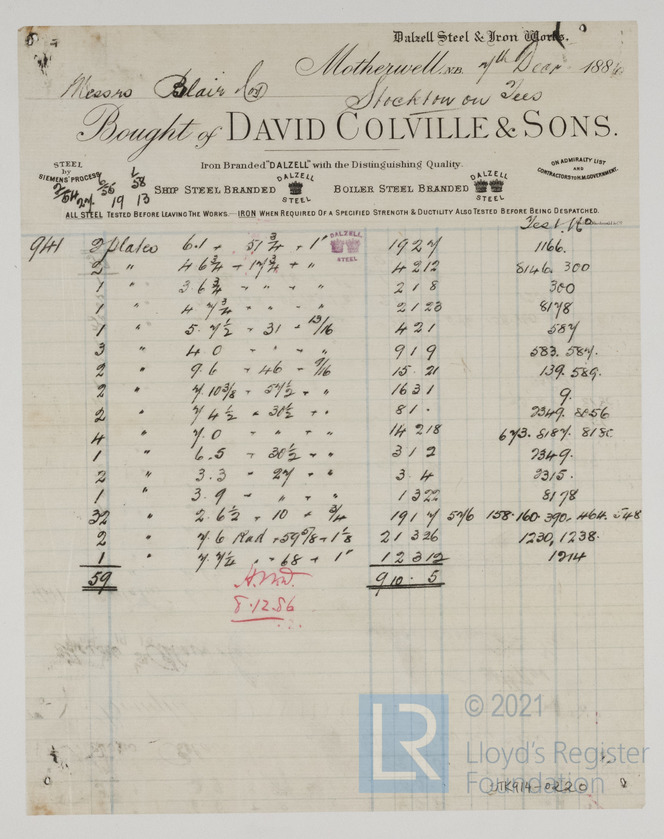 Dalzell Steel & Iron Works.
Motherwell, N.B. 7th Decr 1886
Messrs Blair & Co
Stockton on Tees
Bought of DAVID COLVILLE & SONS.
STEEL by SIEMENS' PROCESS
Iron Branded "DALZELL" with the Distinguishing Quality.
ON ADMIRALTY LIST AND CONTRACTORS FOR H.M. GOVERNMENT.
SHIP STEEL BRANDED DALZELL STEEL BOILER STEEL BRANDED DALZELL STEEL
27 19 13
ALL STEEL TESTED BEFORE LEAVING THE WORKS.—IRON WHEN REQUIRED OF A SPECIFIED STRENGTH & DUCTILITY ALSO TESTED BEFORE BEING DESPATCHED.
Test No
941 2 plates 6.1 - 51 3/4 - 1" DALZELL STEEL 19 2 7 1166.
2 " 4 6 3/4 - 17 3/4 - " 4 2 12 8146. 300
1 " 3 6 3/4 - " - " 2 1 8 300
1 " 4 7 3/4 - " - " 2 1 23 8178
1 " 5.7 1/2 - 31 - 13/16 4 2 1 587
3 " 4 0 - " - " 9 1 9 583. 587.
2 " 9.6 - 46 - 9/16 15. 21 139. 589.
2 " 7.10 3/8 - 57 1/2 - " 16 3 1 9.
2 " 7 4 1/2 - 30 1/2 - " 8 1. 2349. 8056
4 " 7.0 - " - " 14 2 18 673. 8187. 818
1 " 6.5 - 30 1/2 - " 3 1 2 2349.
2 " 3.3 - 27 - " 3. 4 2315.
1 " 3.9 - " - " 1 3 22 8178
32 " 2.6 1/2 - 10 - 3/4 19 1 7 576 158. 160. 390. 464. 548
2 " 7.6 Rad - 59 5/8 - 1 1/8 21 3 26 1230, 1238.
1 " 7.7 1/2 - 68 - 1" 12 3 12 1214
59 9 10. 5
8.12.86
LR © 2021
Lloyd's Register
Foundation
UTK914-0220